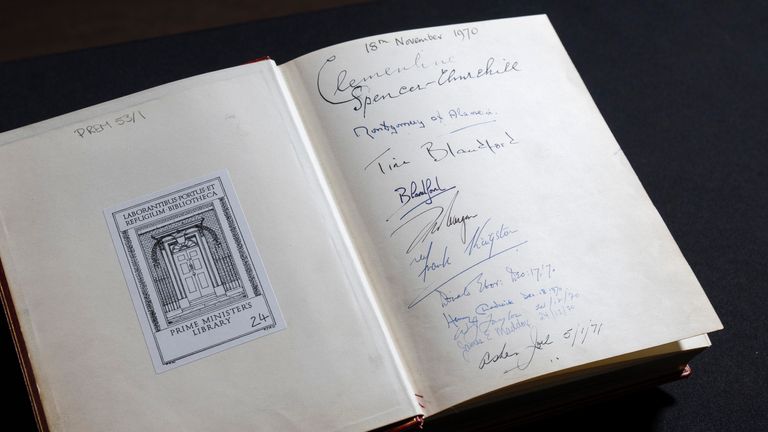 PREM 53/1
LABORANTIBUS PORTUS·ET
REFUGIUM·BIBLIOTHECA
PRIME MINISTER'S
LIBRARY 24
18th November 1970
Clementine
Spencer-Churchill
Montgomery of Alamein.
Tina Blandford
Blandford
Frank
Ebor: Dec: 17/70.
Henry Chadwick Dec. 18. 1970
/12/70
James E 24/12/70
5/1/71